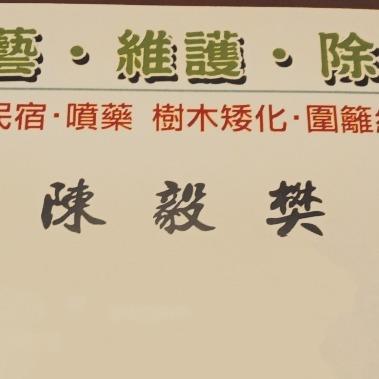 藝·維護·除
民宿·噴藥 樹木矮化·圍籬
陳毅樊